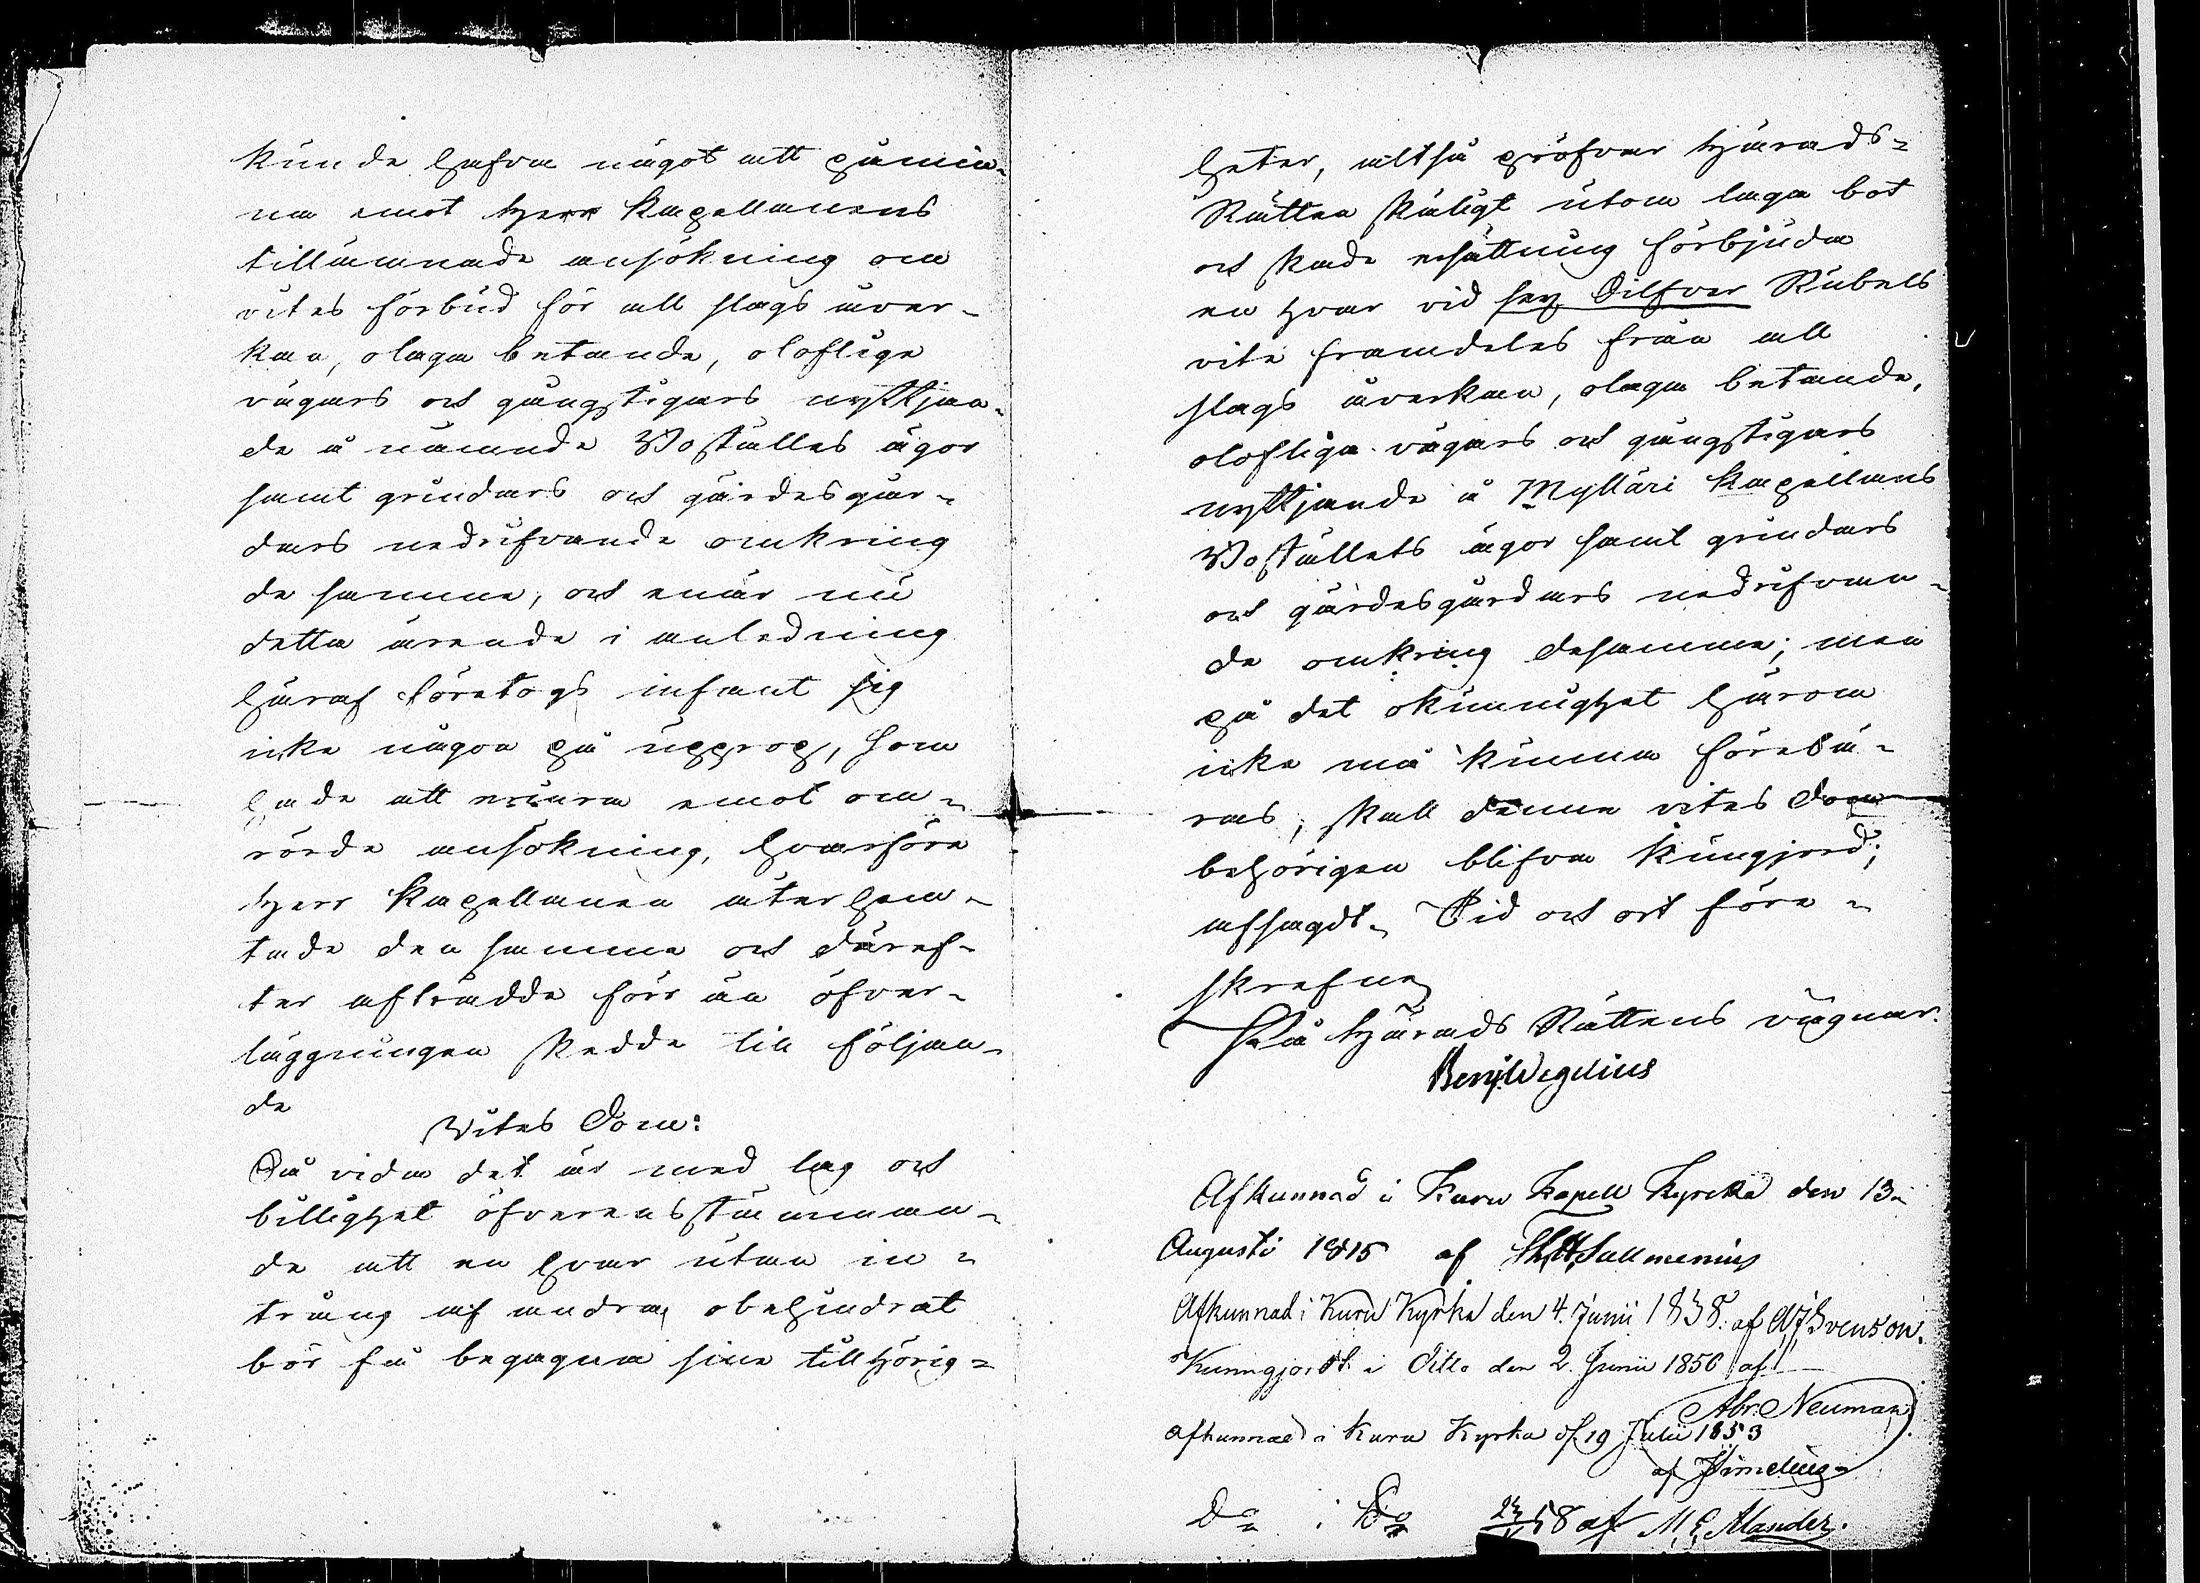 kunde hafva något att påmin-
na emot Herr Kapellanens
tillämnade ansökning om
vites förbud för all slags åver-
kan, olaga betande, oloflige
vägars och gångstigars nyttjan-
de å nämnde Boställes ägor
samt grindars och gärdesgår-
dars nedrifvande omkring
de samma, och enär nu
detta ärende i anledning
häraf företogs infant sig
icke någon på upprop, som
hade att erinra emot om-
rörde ansökning, hvarföre
Herr Kapellanen återhem-
tade den samma och däref-
ter afträdde förr än öfver-
läggningen skedde till följan-
de
Vites Dom:
Så vida det är med lag och
billighet öfverensstämman-
de att en hvar utan in-
trång af andra, obehindrat
bör få begagna sine tillhörig-
heter, altså pröfvar Härads-
Rätten skäligt utom laga bot
och skade ersättning förbjuda
en hvar vid sex Silfver Rubels
vite framdeles från all
slags åverkan, olaga betande,
olofliga vägars och gångstigars
nyttjande å Mylläri Kapellans
Boställets ägor samt grindars
och gärdesgårdars nedrifvan-
de omkring desamma; men
på det okunnighet härom
icke må kunna förebä-
ras, skall denne vites Dom
behörigen blifva kungjord;
afsagdt. Tid och ort före-
skrefne
På Härads Rättens vägnar.
Benj. Wegelius
Afkunnad i Kuru Kapell Kyrcka den 13
Augusti 1815 af Sallmenius
Afkunnad i Kuru Kyrka den 4. Junii 1838. af Svenson.
Kunngjordt i Ditto den 2. Junii 1850 af
Abr. Neuman
afkunnad i Kuru Kyrka d. 19 Julii 1853
af Simelius
Do i Do 58 af M. E. Alander.